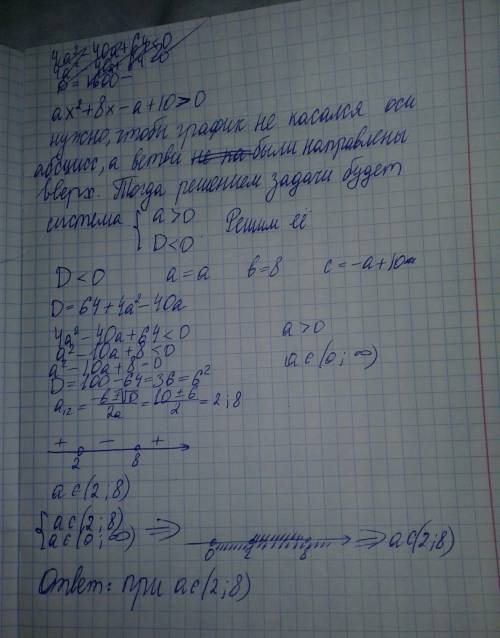 4a²-40a+64<0
4a²-40a+64=0
D=1600-
ax²+8x-a+10>0
нужно, чтобы график не касался оси
абсцисс, а ветви не на были направлены
вверх. Тогда решением задачи будет
система { a>0 Решим её
D<0
D<0 a=a b=8 c=-a+10
D=64+4a²-40a
4a²-40a+64<0 a>0
a²-10a+8<0 a∈(0;∞)
a²-10a+8=0
D=100-64=36=6²
a₁₂=-b±√D/2a=10±6/2=2;8
+ - +
2 8
a∈(2;8)
{a∈(2;8)
a∈(0;∞) ⇒ 0 2 8 ⇒ a∈(2;8)
Ответ: при a∈(2;8)